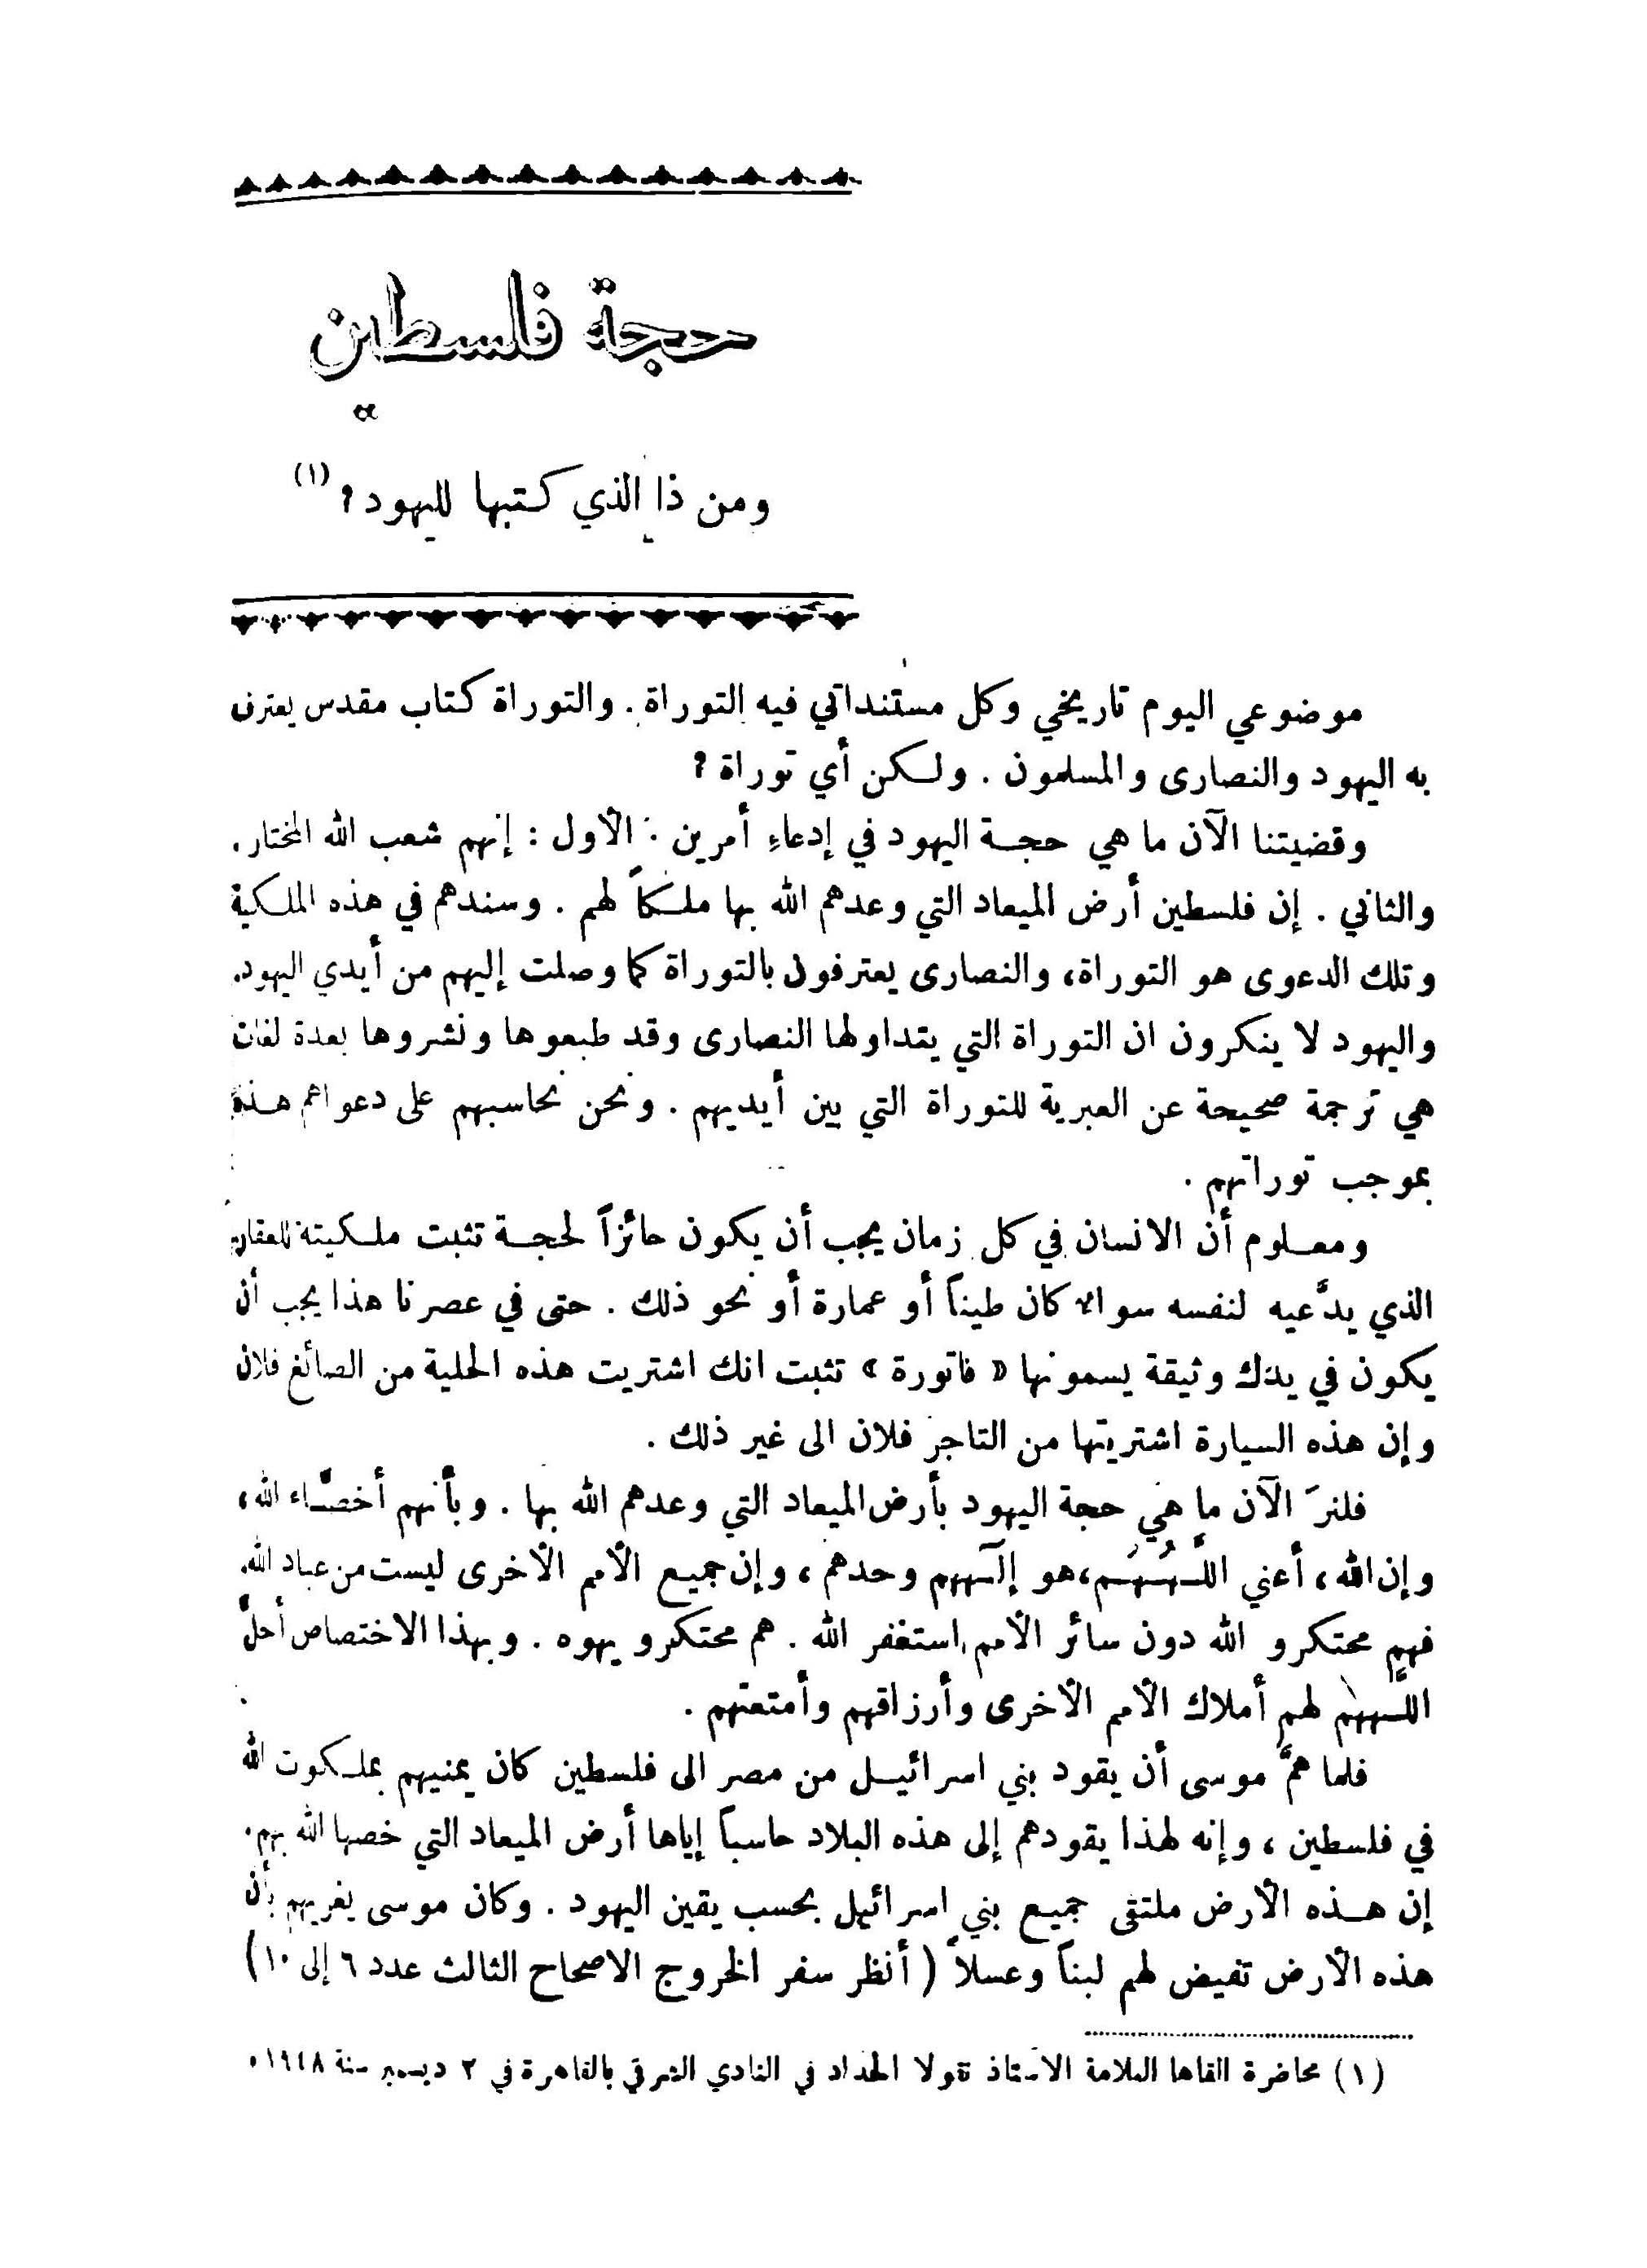 حجة فلسطين
ومن ذا الذي كتبها لليهود؟ (١)
موضوعي اليوم تاريخي وكل مستنداتي فيه التوراة. والتوراة كتاب مقدس يعترف
به اليهود والنصارى والمسلمون . ولكن أي توراة ؟
وقضيتنا الآن ما هي حجة اليهود في إدعاءِ أمرين : الأول : إنهم شعب الله المختار .
والثاني . إن فلسطين أرض الميعاد التي وعدهم الله بها ملكاً لهم . وسندهم في هذه الملكية
وتلك الدعوى هو التوراة، والنصارى يعترفون بالتوراة كما وصلت إليهم من أيدي اليهود.
واليهود لا ينكرون ان التوراة التي يتداولها النصارى وقد طبعوها ونشروها بعدة لغات
هي ترجمة صحيحة عن العبرية للتوراة التي بين أيديهم . ونحن نحاسبهم على دعواهم هذه
بموجب توراتهم .
ومعلوم أن الانسان في كل زمان يجب أن يكون حائزاً لحجة تثبت ملكيته للعقار
الذي يدَّعيه لنفسه سوالا كان طيناً أو عمارة أو نحو ذلك . حتى في عصرنا هذا يجب أن
يكون في يدك وثيقة يسمونها « فاتورة » تثبت انك اشتريت هذه الحلية من الصائغ فلان
وإن هذه السيارة اشتريتها من التاجر فلان الى غير ذلك .
فلنرَ الآن ما هي حجة اليهود بأرض الميعاد التي وعدهم الله بها . وبأنهم أخصَّاء الله،
وإن الله، أعني اللَّهُهُم،هو إلٓههم وحدهم ، وإن جميع الأمم الأخرى ليست من عباد الله.
فهم محتكرو الله دون سائر الأمم استغفر الله . هم محتكرو يهوه . وبهذا الاختصاص أحلَّ
اللَّههم لهم أملاك الأمم الأخرى وأرزاقهم وأمتعتهم .
فلما همَّ موسى أن يقود بني اسرائيل من مصر الى فلسطين كان يمنيهم بملكوت الله
في فلسطين ، وإنه لهذا يقودهم إلى هذه البلاد حاسباً إياها أرض الميعاد التي خصها الله بهم.
إن هذه الأرض ملتقى جميع بني اسرائيل بحسب يقين اليهود . وكان موسى يغريهم بأن
هذه الأرض تفيض لهم لبناً وعسلاً ( أنظر سفر الخروج الاصحاح الثالث عدد ٦ إلى ١٠ )
(١) محاضرة القاها العلامة الاستاذ نقولا الحداد في النادي الشرقي بالقاهرة في ٢ ديسمبر سنة ١٩٤٨ .